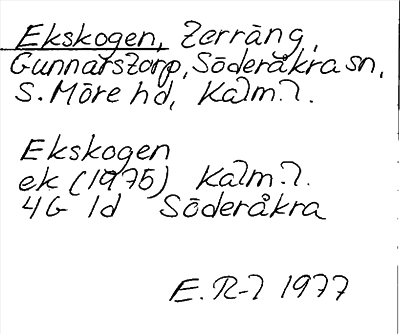 Ekskogen, Terräng,
Gunnarstorp, Söderåkra sn,
S. Möre hd, Kalm. l.
Ekskogen
ek (1975) Kalm. l.
4G 1d Söderåkra
E. R-l 1977